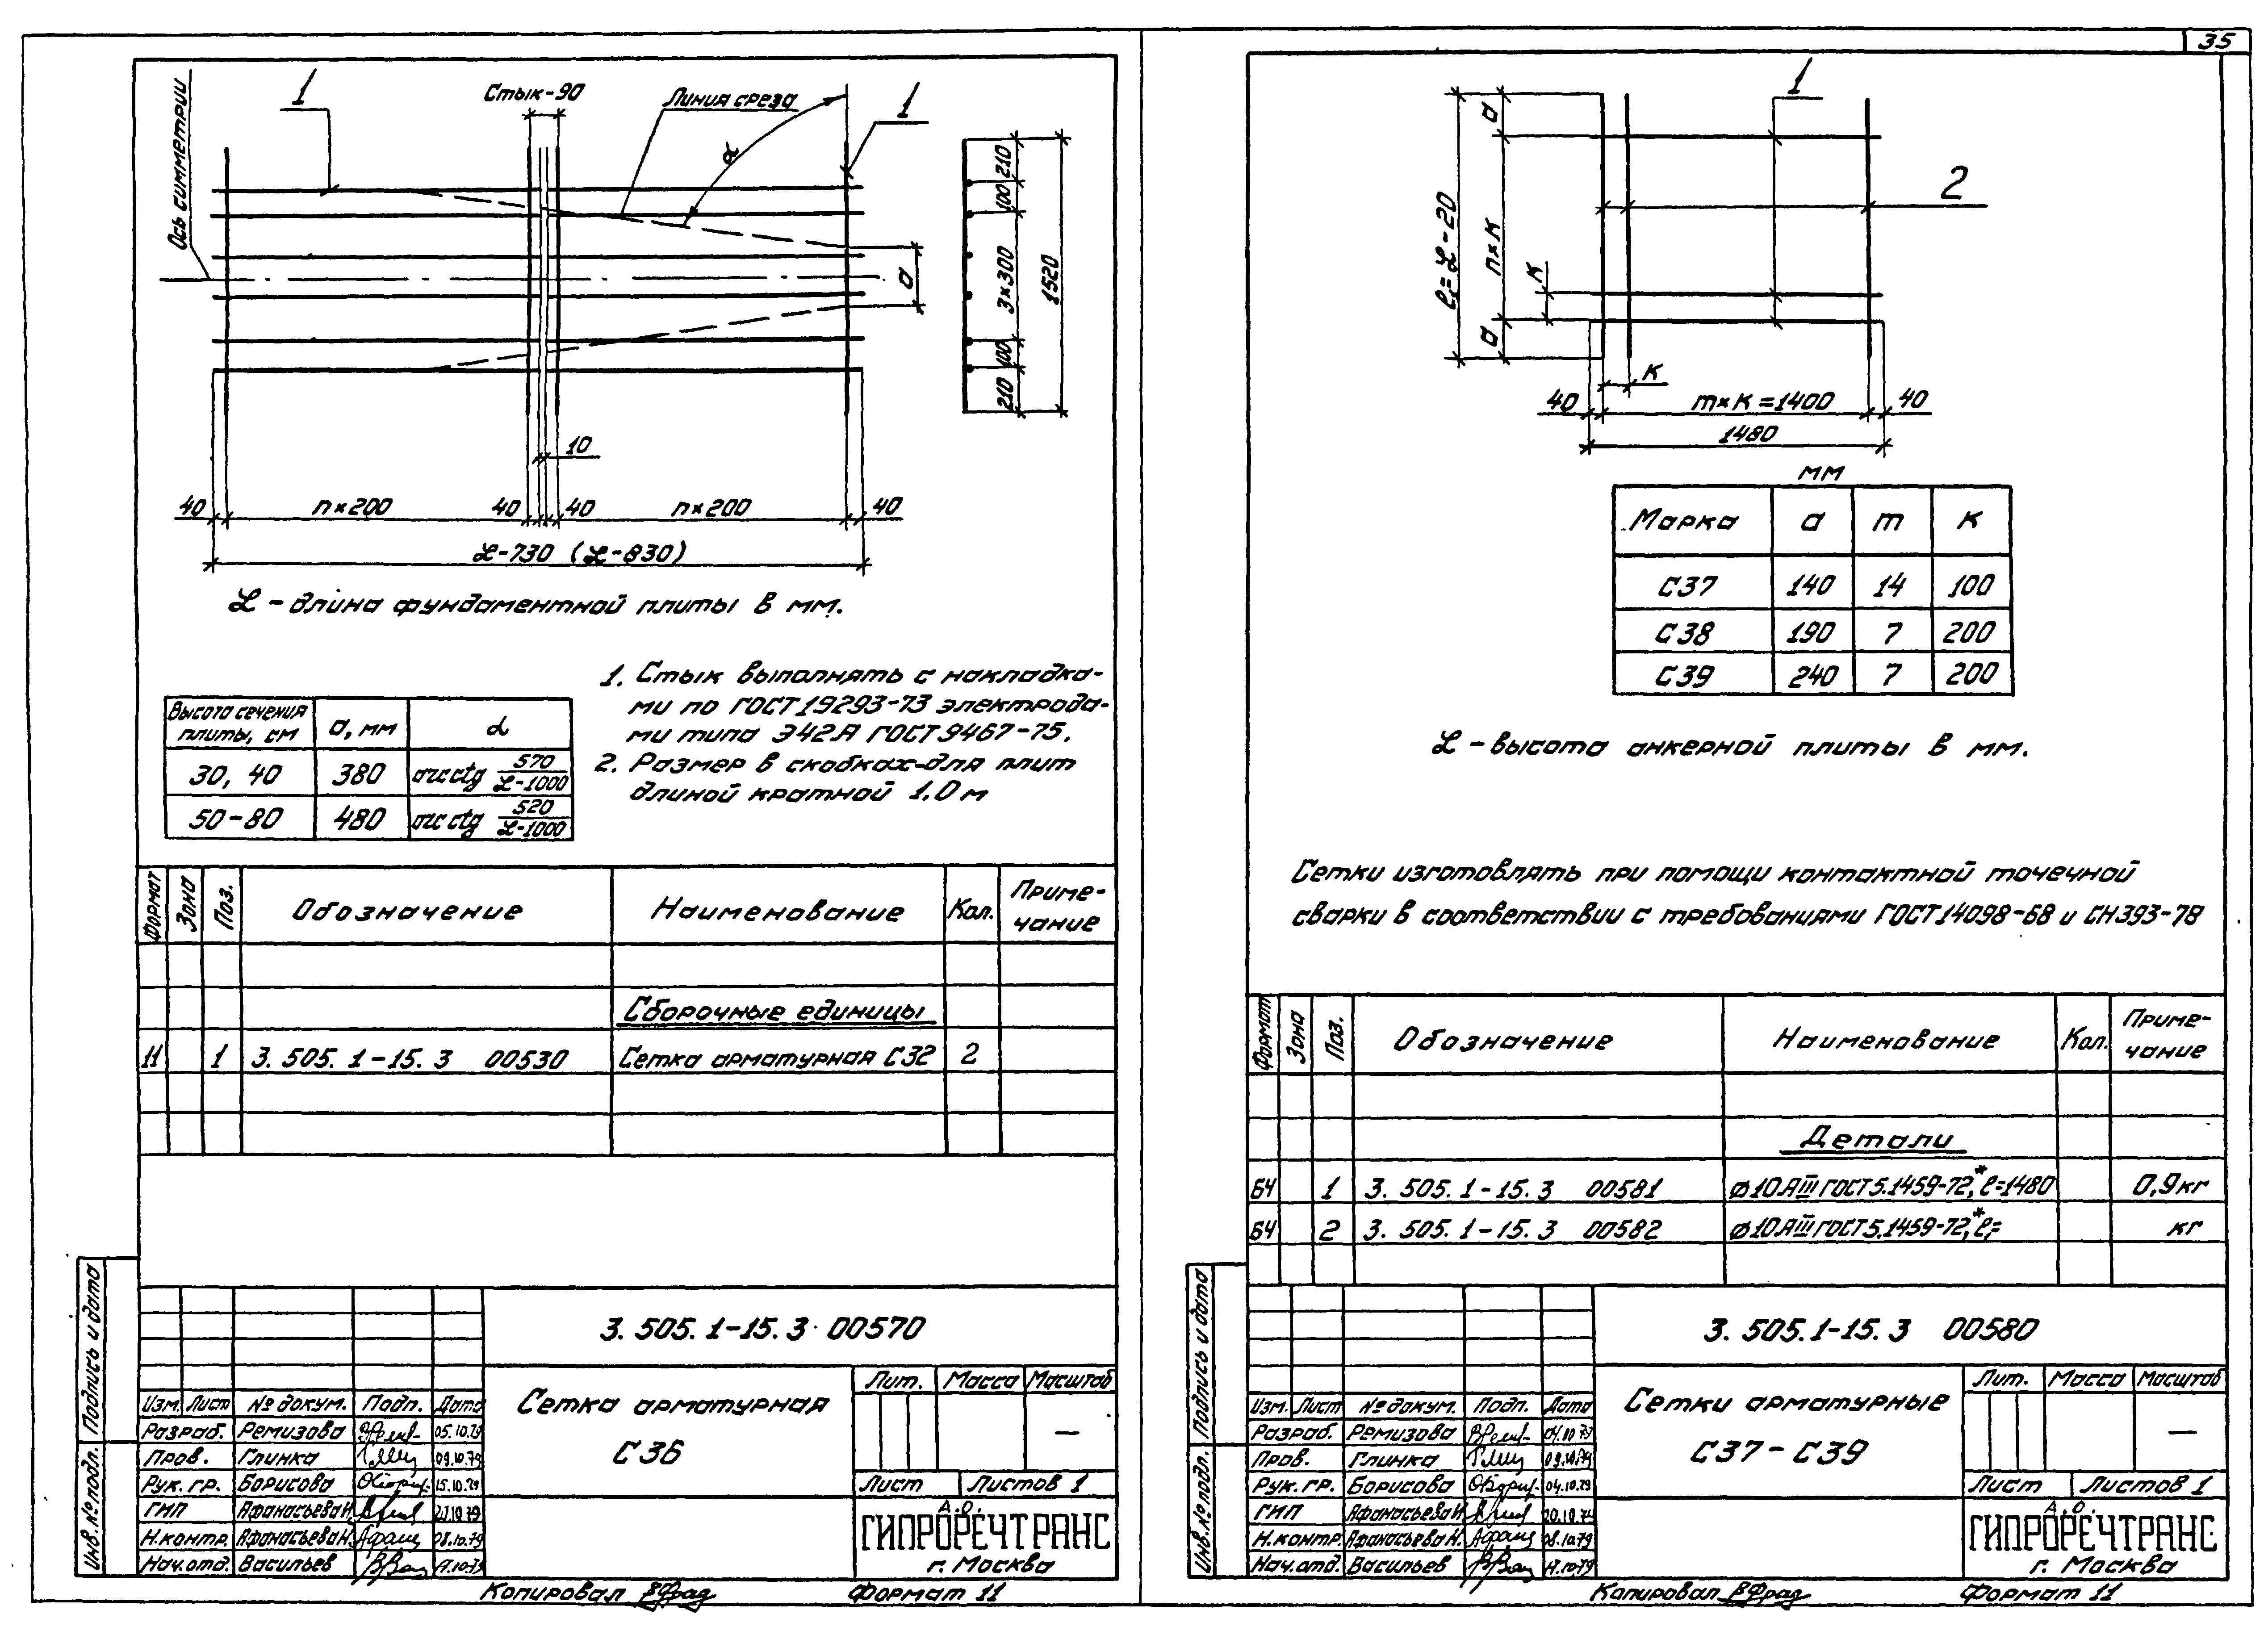 35
Ось симметрии
1
Стык-90
Линия среза
α
1
а
210
100
3×300
100
210
1520
10
40
n×200
40
40
n×200
40
ℒ-730 (ℒ-830)
ℒ - длина фундаментной плиты в мм.
1. Стык выполнять с накладка-
ми по ГОСТ 19293-73 электрода-
ми типа Э42А ГОСТ 9467-75.
2. Размер в скобках-для плит
длиной кратной 1.0 м
Высота сечения плиты, см | а, мм | α
30, 40 | 380 | arcctg 570/ℒ-1000
50-80 | 480 | arcctg 520/ℒ-1000
Формат | Зона | Поз. | Обозначение | Наименование | Кол. | Приме-чание
Сборочные единицы
11 | 1 | 3.505.1-15.3 00530 | Сетка арматурная С32 | 2
3.505.1-15.3 00570
Сетка арматурная
С36
Лит. Масса Масштаб
—
Лист Листов 1
А.О.
ГИПРОРЕЧТРАНС
г. Москва
Изм. Лист № докум. Подп. Дата
Разраб. Ремизова 05.10.79
Пров. Глинка 09.10.79
Рук. гр. Борисова 15.10.79
ГИП Афанасьева Н. 20.10.79
Н.контр. Афанасьева Н. 08.10.79
Нач.отд. Васильев 17.10.79
Подпись и дата
Инв. № подл.
Копировал
Формат 11
1
2
а
n×к
а
ℓ₁=ℒ-20
к
к
40
m×к=1400
40
1480
мм
Марка | а | m | к
С37 | 140 | 14 | 100
С38 | 190 | 7 | 200
С39 | 240 | 7 | 200
ℒ - высота анкерной плиты в мм.
Сетки изготовлять при помощи контактной точечной
сварки в соответствии с требованиями ГОСТ 14098-68 и СН393-78
Формат | Зона | Поз. | Обозначение | Наименование | Кол. | Приме-чание
Детали
БЧ | 1 | 3.505.1-15.3 00581 | ⌀10АIII ГОСТ 5.1459-72,* ℓ=1480 | 0,9кг
БЧ | 2 | 3.505.1-15.3 00582 | ⌀10АIII ГОСТ 5.1459-72,* ℓ₁= | кг
3.505.1-15.3 00580
Сетки арматурные
С37-С39
Лит. Масса Масштаб
—
Лист Листов 1
А.О.
ГИПРОРЕЧТРАНС
г. Москва
Изм. Лист № докум. Подп. Дата
Разраб. Ремизова 04.10.79
Пров. Глинка 09.10.79
Рук. гр. Борисова 04.10.79
ГИП Афанасьева Н. 20.10.79
Н.контр. Афанасьева Н. 08.10.79
Нач.отд. Васильев 17.10.79
Подпись и дата
Инв. № подл.
Копировал
Формат 11